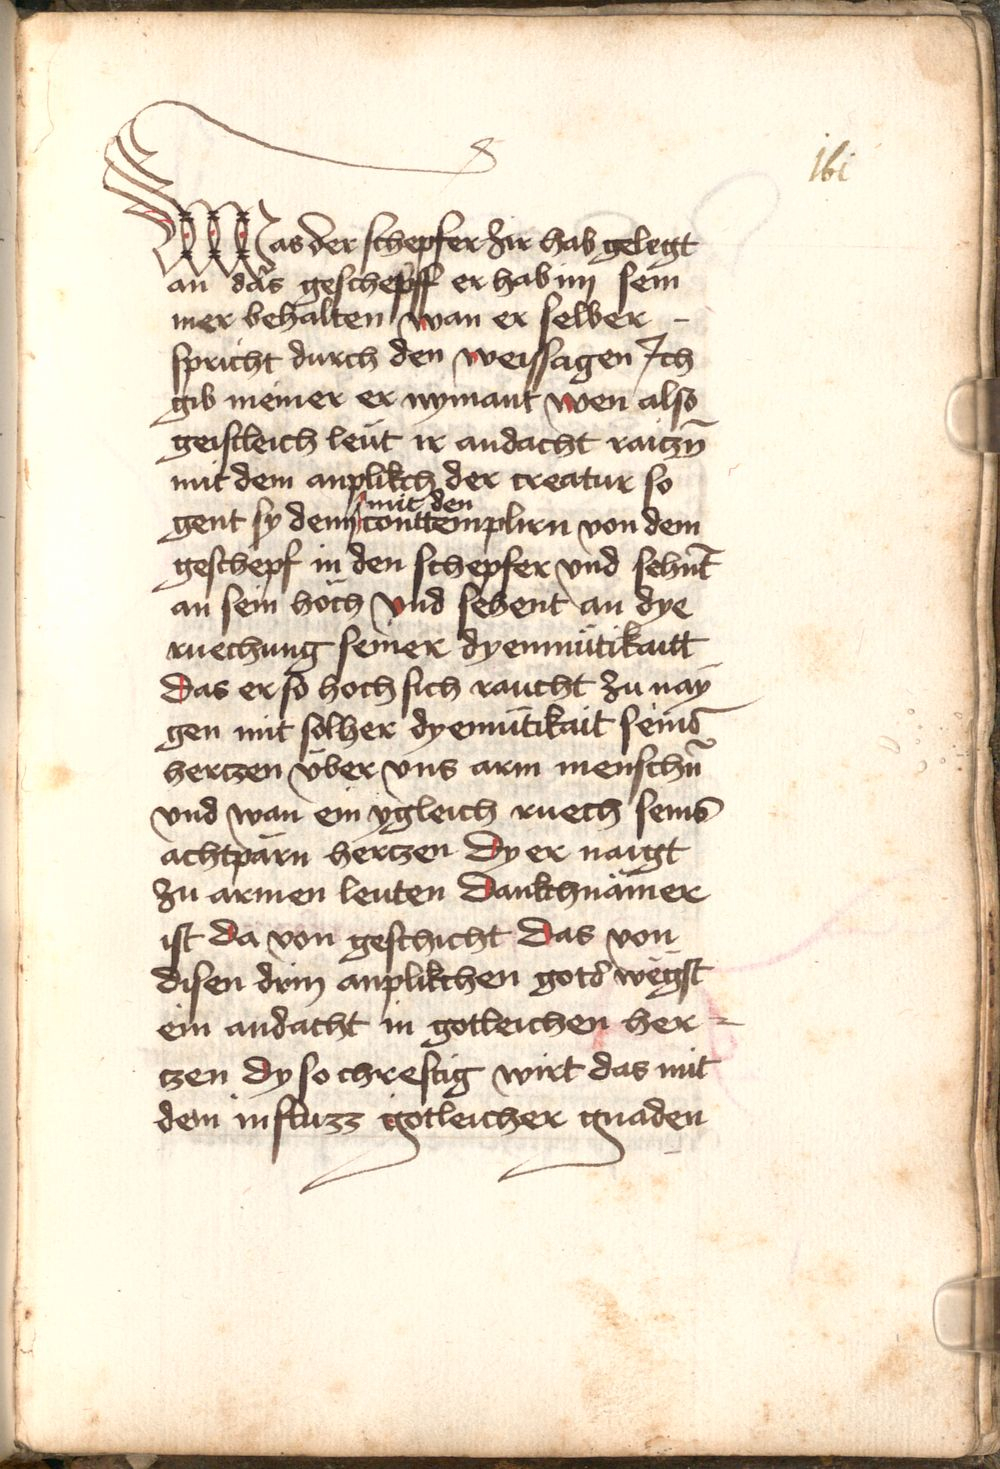 161
Was der schepfer zir hab gelegt
an das geschepff er hab im sein
mer behalten wan er selber –
spricht durch den weissagen Ich
gib meiner er nymant wen also
geistleich leüt ir andacht raiczn̄
mit dem anplikch der creatur so
mit den
gent sy denn conttemplirn von dem
geschepf in den schepfer vnd sehnt̄
an sein höch vnd sehent an dye
ruechung seiner dyemütikaitt
das er so hoch sich raucht zu nay
gen mit solher dyemütikait seins
herczen über vns arm menschn̄
vnd wan ein ygleich ruech seins
achtpärn herczen dy er naigt
zu armen leuten dankchnämer
ist da von geschicht das von
disen drin anplikchen gots wegst
ein andacht in gotleichen her=
czen dy so chreftig wirt das mit
dem influzz gotleicher gnaden